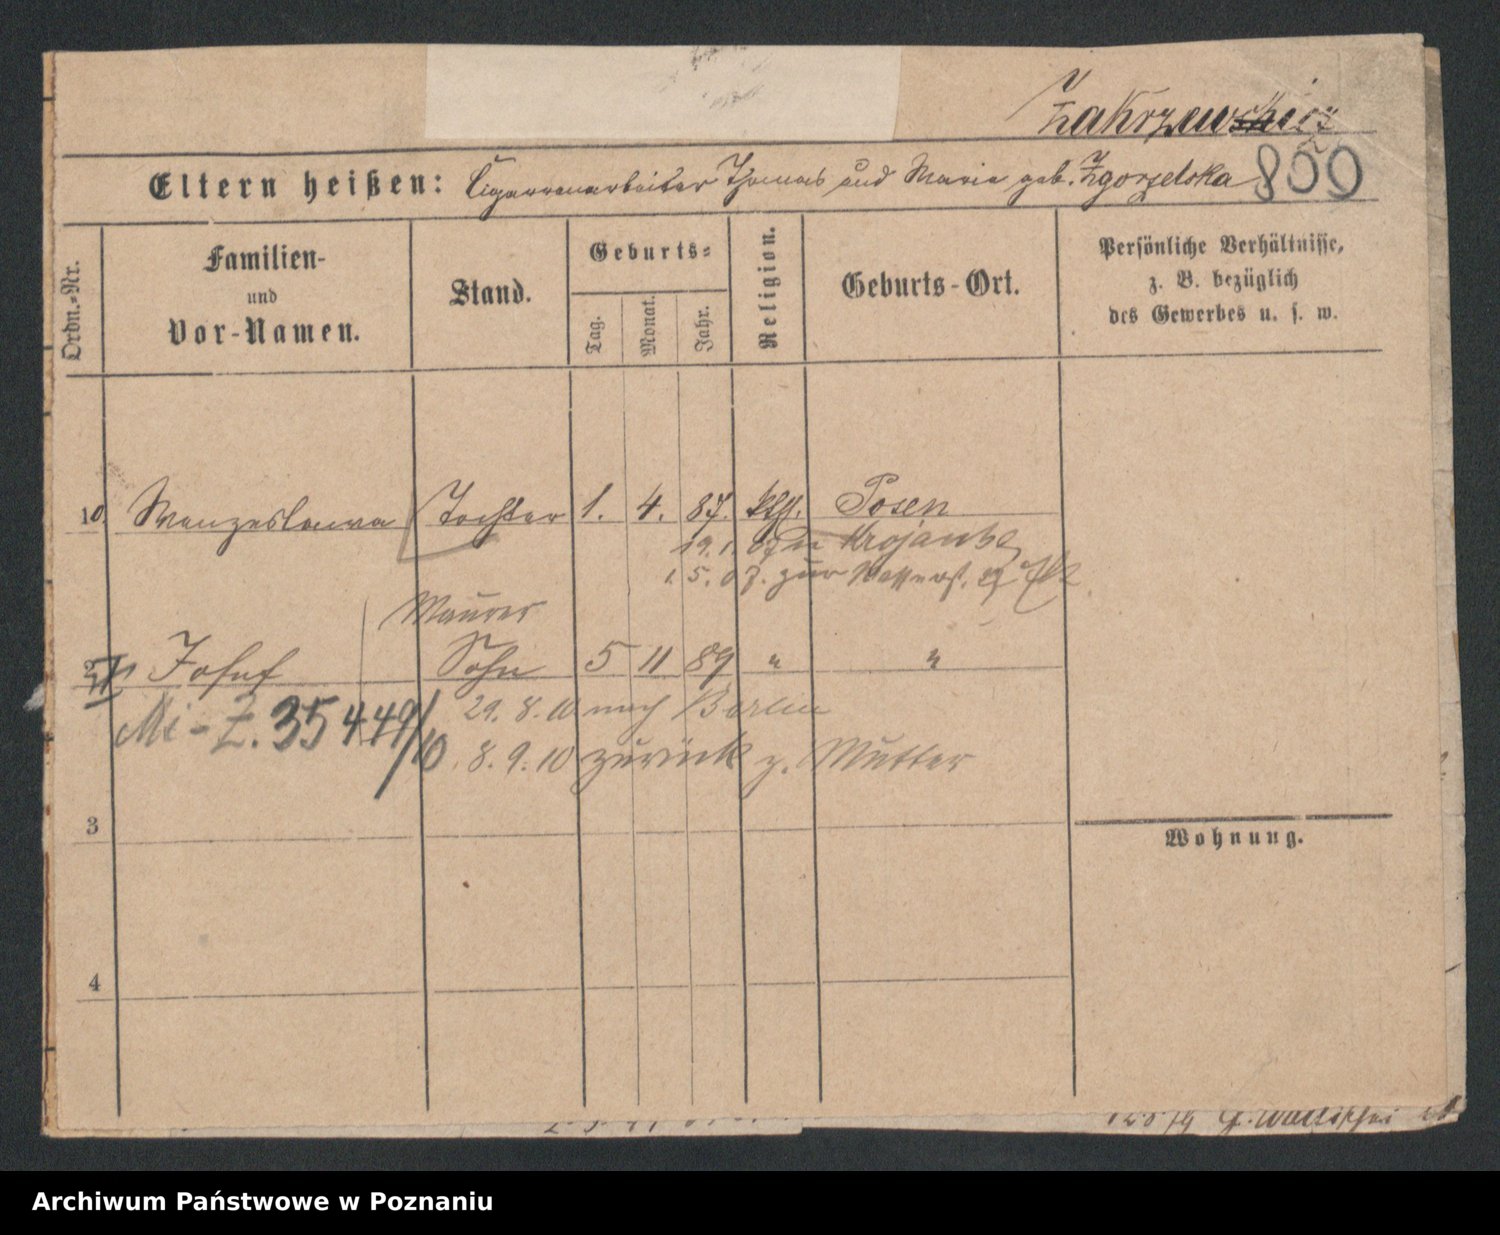 Zakrzewicz
Eltern heißen: Cigarrenarbeiter Thomas und Marie geb. Zgorzelska 850
Ordn.-Nr.
Familien-
und
Vor-Namen.
Stand.
Geburts-
Tag.
Monat.
Jahr.
Religion.
Geburts-Ort.
Persönliche Verhältnisse,
z. B. bezüglich
des Gewerbes u. s. w.
10 Wenzeslawa Tochter 1. 4. 87. kth. Posen
19.1.07 Krojanke
1.5.07. zur
Maurer
2 Josef Sohn 5 11 89 " "
Mi-Z. 35449/10 29.8.10 nach Berlin
8.9.10 zurück z. Mutter
3
Wohnung.
4